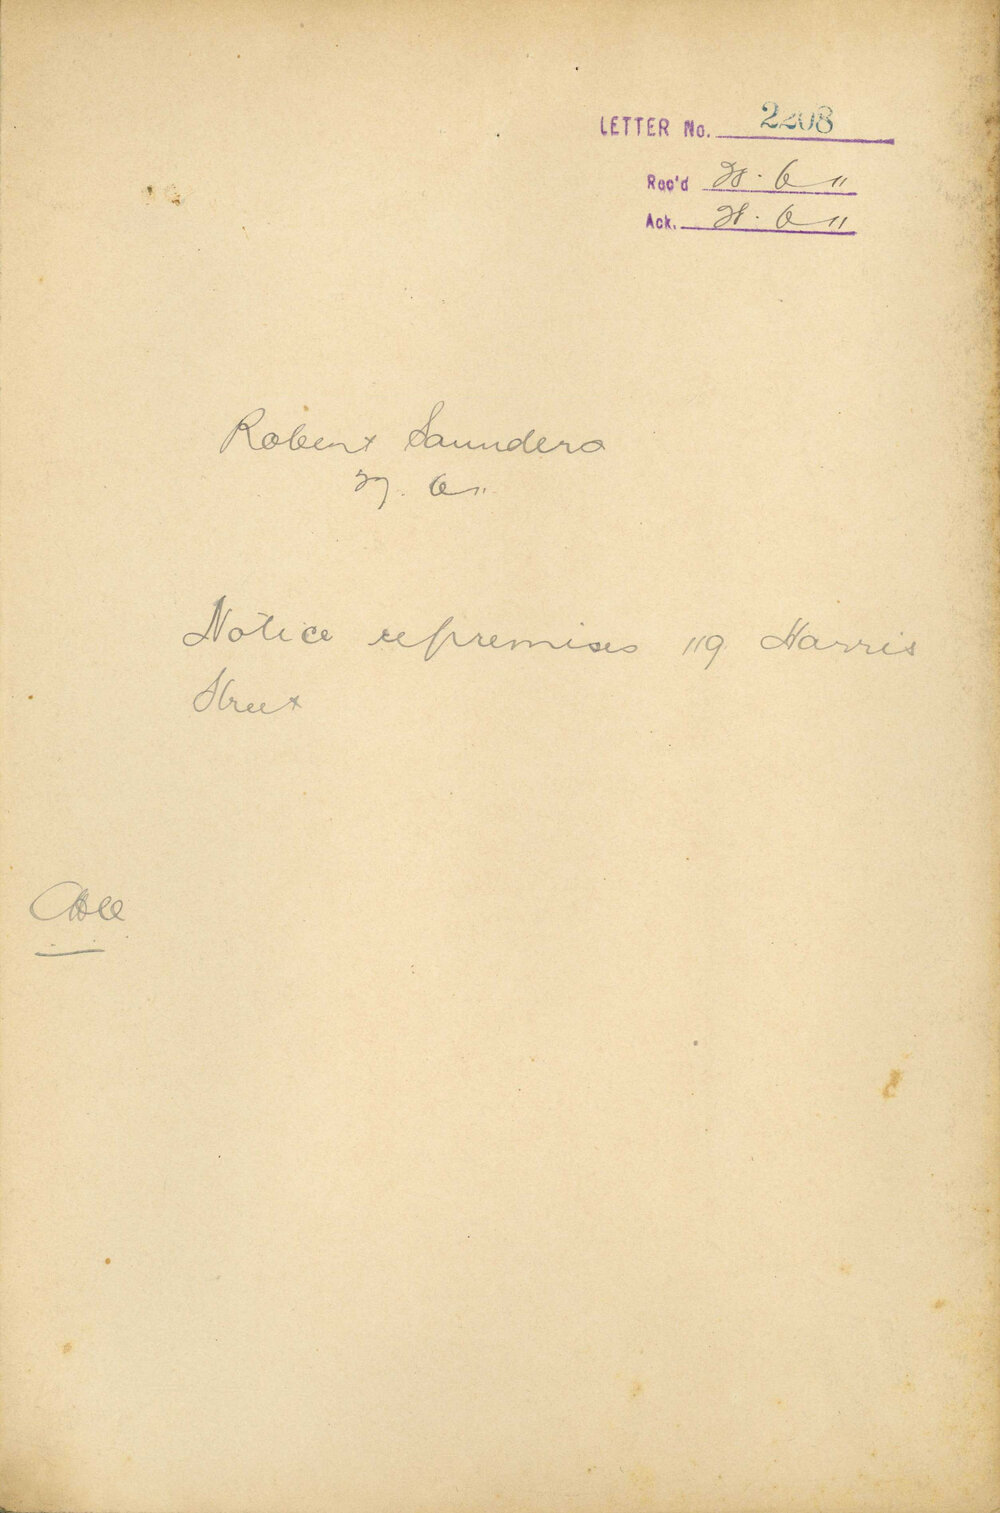 LETTER No. 2208
Rec'd 28. 6 11
Ack. 28. 6 11
Robert Saunders
27. 6 11.
Notice re premises 119 Harris
Street